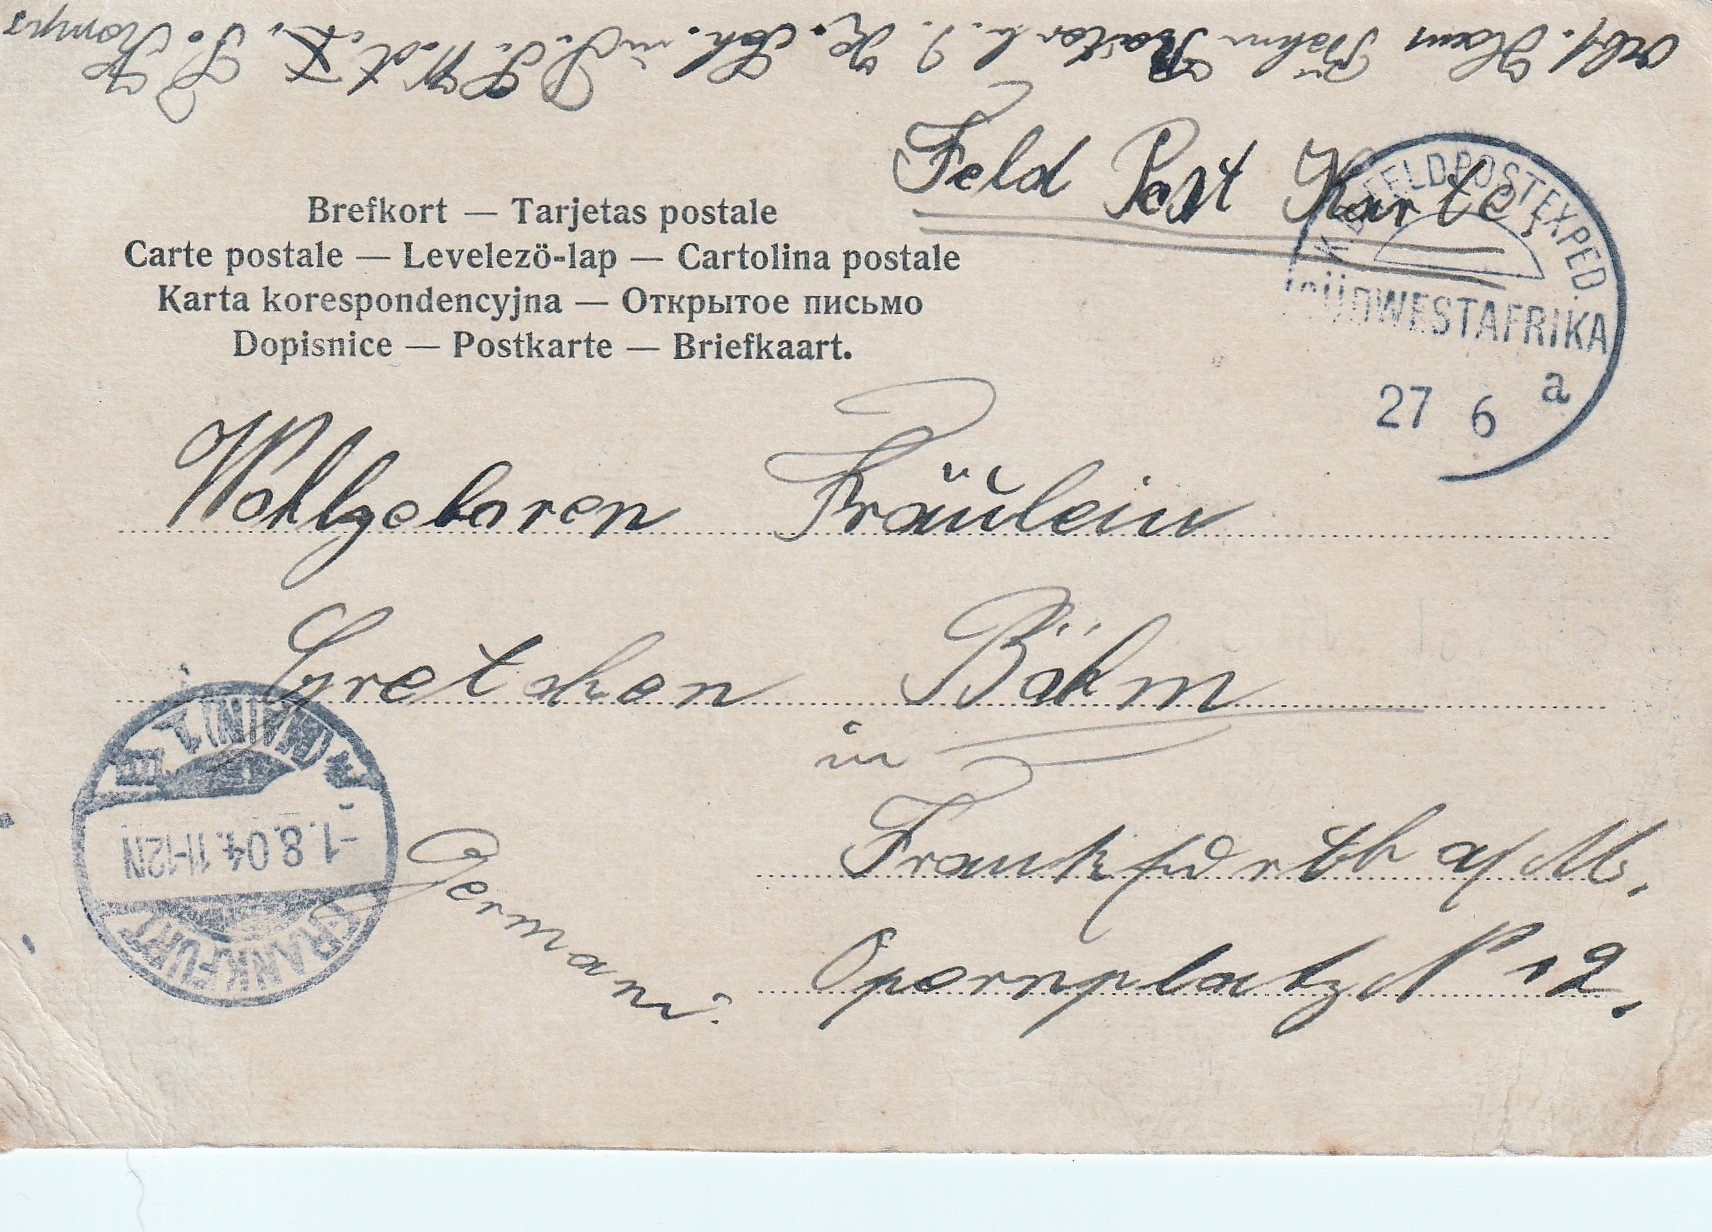 Feld Post Karte.
K. D. FELDPOSTEXPED.
SÜDWESTAFRIKA
27 6 a
Brefkort — Tarjetas postale
Carte postale — Levelezö-lap — Cartolina postale
Karta korespondencyjna — Открытое письмо
Dopisnice — Postkarte — Briefkaart.
Wohlgeboren Fräulein
Gretchen Böhm
in
Frankfurth a/M.
Opernplatz N 12.
Germani.
FRANKFURT
-1.8.04. 11-12N
* (MAIN) 1
Böhm